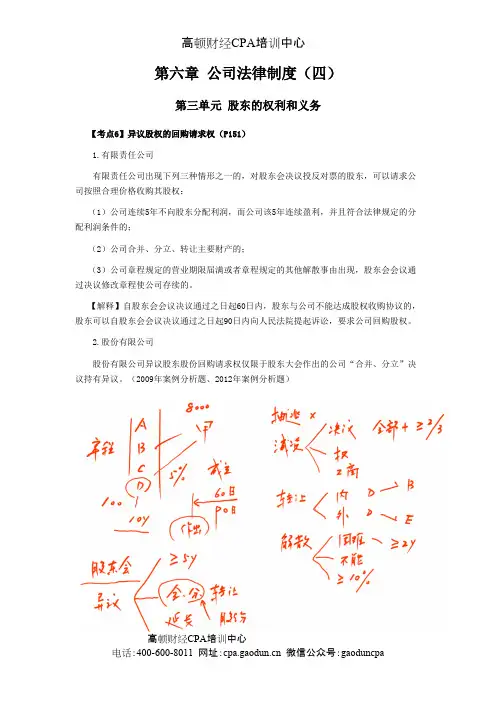 高顿财经CPA培训中心
第六章 公司法律制度（四）
第三单元 股东的权利和义务
【考点6】异议股权的回购请求权（P151）
1.有限责任公司
有限责任公司出现下列三种情形之一的，对股东会决议投反对票的股东，可以请求公
司按照合理价格收购其股权：
（1）公司连续5年不向股东分配利润，而公司该5年连续盈利，并且符合法律规定的分
配利润条件的；
（2）公司合并、分立、转让主要财产的；
（3）公司章程规定的营业期限届满或者章程规定的其他解散事由出现，股东会会议通
过决议修改章程使公司存续的。
【解释】自股东会会议决议通过之日起60日内，股东与公司不能达成股权收购协议的，
股东可以自股东会会议决议通过之日起90日内向人民法院提起诉讼，要求公司回购股权。
2.股份有限公司
股份有限公司异议股东股份回购请求权仅限于股东大会作出的公司“合并、分立”决
议持有异议。（2009年案例分析题、2012年案例分析题）
章程
A
B
C
D
8000
甲
5%
100
10%
60日
90日
作出
股东会
异议
≥5y
合.分
转让
延长
股份
抽逃 ×
减资
决议 全部+≥2/3
工商
转让
内 D B
外 D E
解散
困难 ≥2y
不能
≥10%
高顿财经CPA培训中心
电话:400-600-8011 网址:cpa.gaodun.cn 微信公众号:gaoduncpa